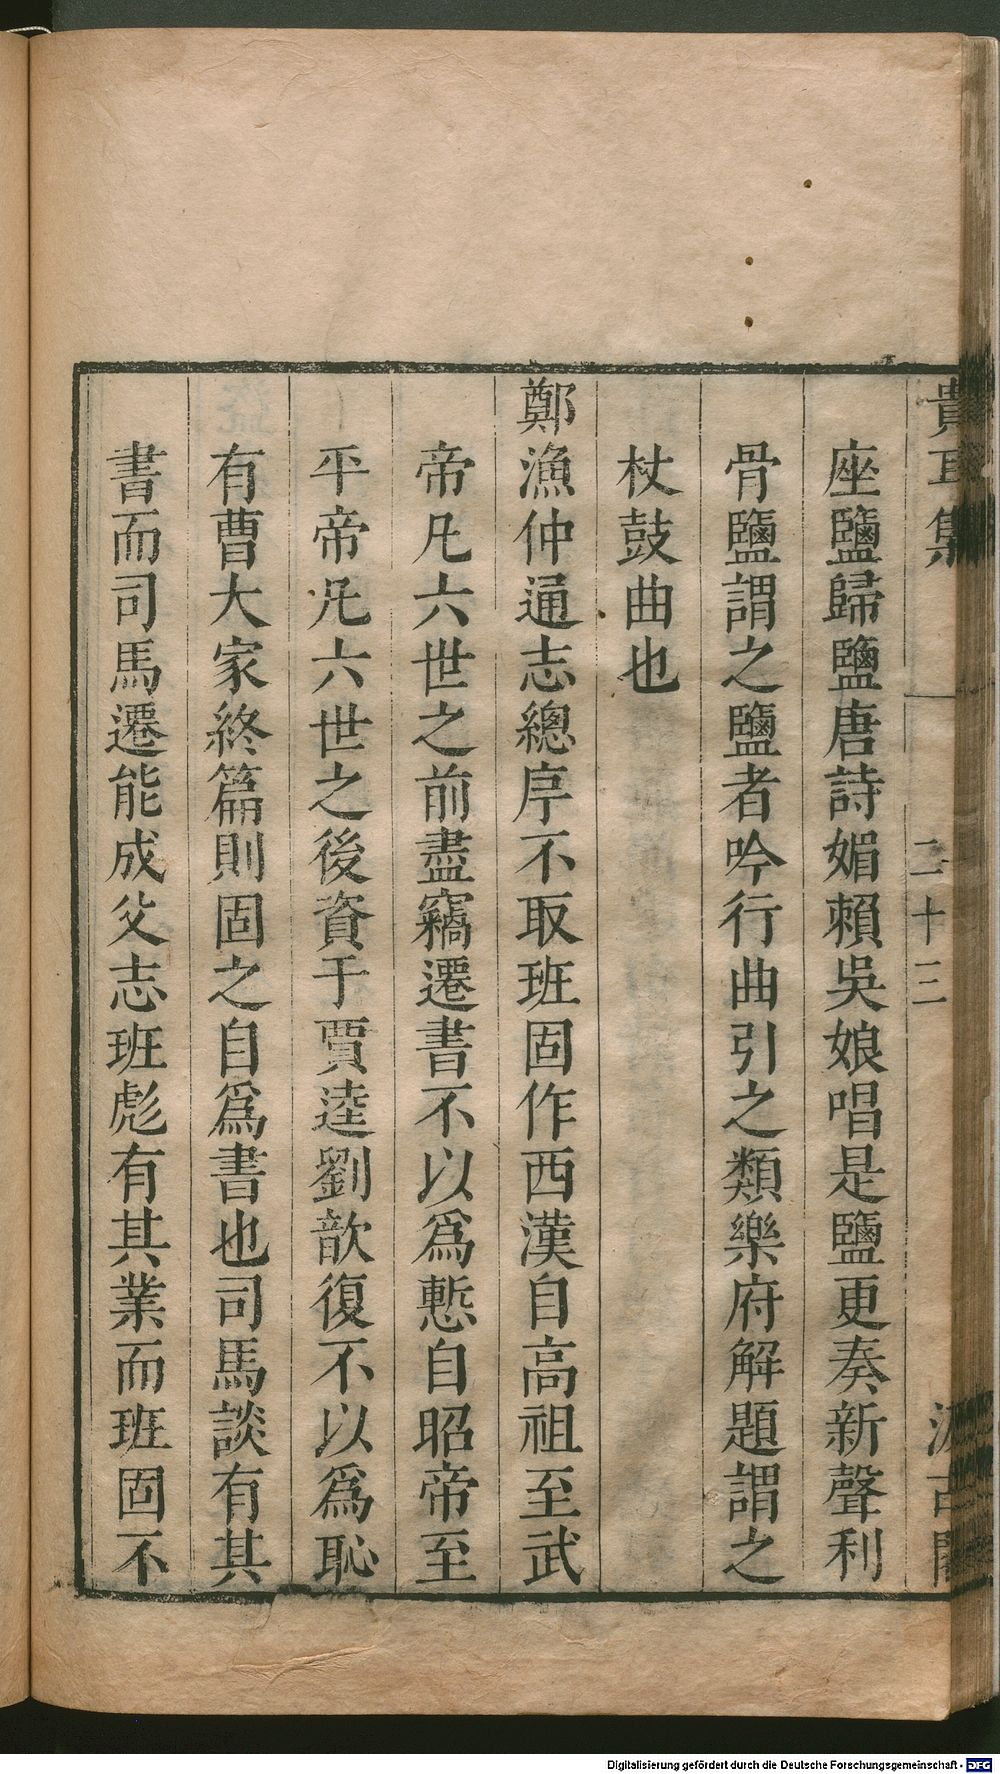 貴耳集 二十三 汲古閣
座鹽歸鹽唐詩媚賴吳娘唱是鹽更奏新聲利
骨鹽謂之鹽者吟行曲引之類樂府解題謂之
杖鼓曲也
鄭漁仲通志總序不取班固作西漢自高祖至武
帝凡六世之前盡竊遷書不以爲慙自昭帝至
平帝凡六世之後資于賈逵劉歆復不以爲恥
有曹大家終篇則固之自爲書也司馬談有其
書而司馬遷能成父志班彪有其業而班固不
Digitalisierung gefördert durch die Deutsche Forschungsgemeinschaft - DFG